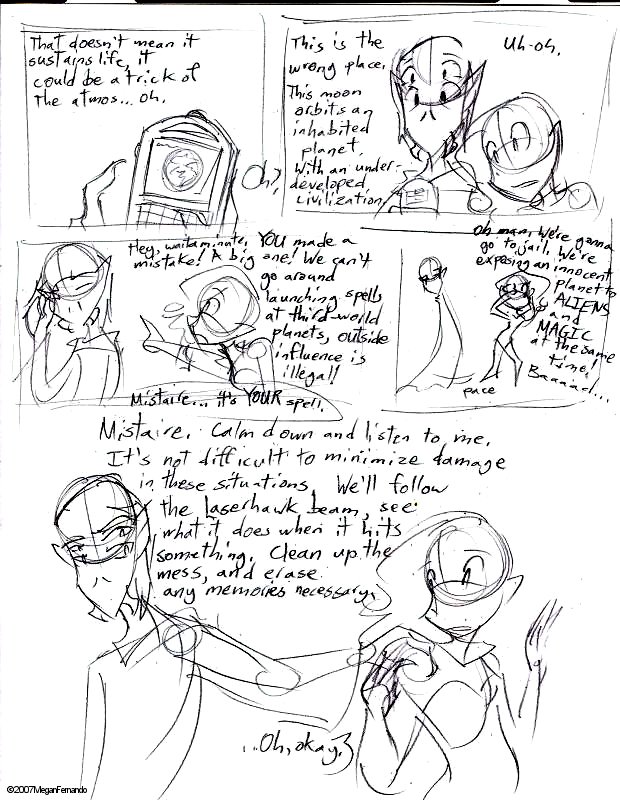 That doesn't mean it
sustains life, it
could be a trick of
the atmos... Oh.
Oh?
This is the
wrong place.
This moon
orbits an
inhabited
planet.
With an under-
developed
civilization.
Uh-oh.
Hey, waitaminute, YOU made a
mistake! A big one! We can't
go around
launching spells
at third-world
planets, outside
influence is
illegal!
Mistaire... it's YOUR spell.
Oh man, We're gonna
go to jail. We're
exposing an innocent
planet to
ALIENS
and
MAGIC
at the same
time!
Baaaad...
pace
Mistaire. Calm down and listen to me.
It's not difficult to minimize damage
in these situations. We'll follow
the laserhawk beam, see
what it does when it hits
something. Clean up the
mess, and erase
any memories necessary.
...Oh, okay.
©2007MeganFernando